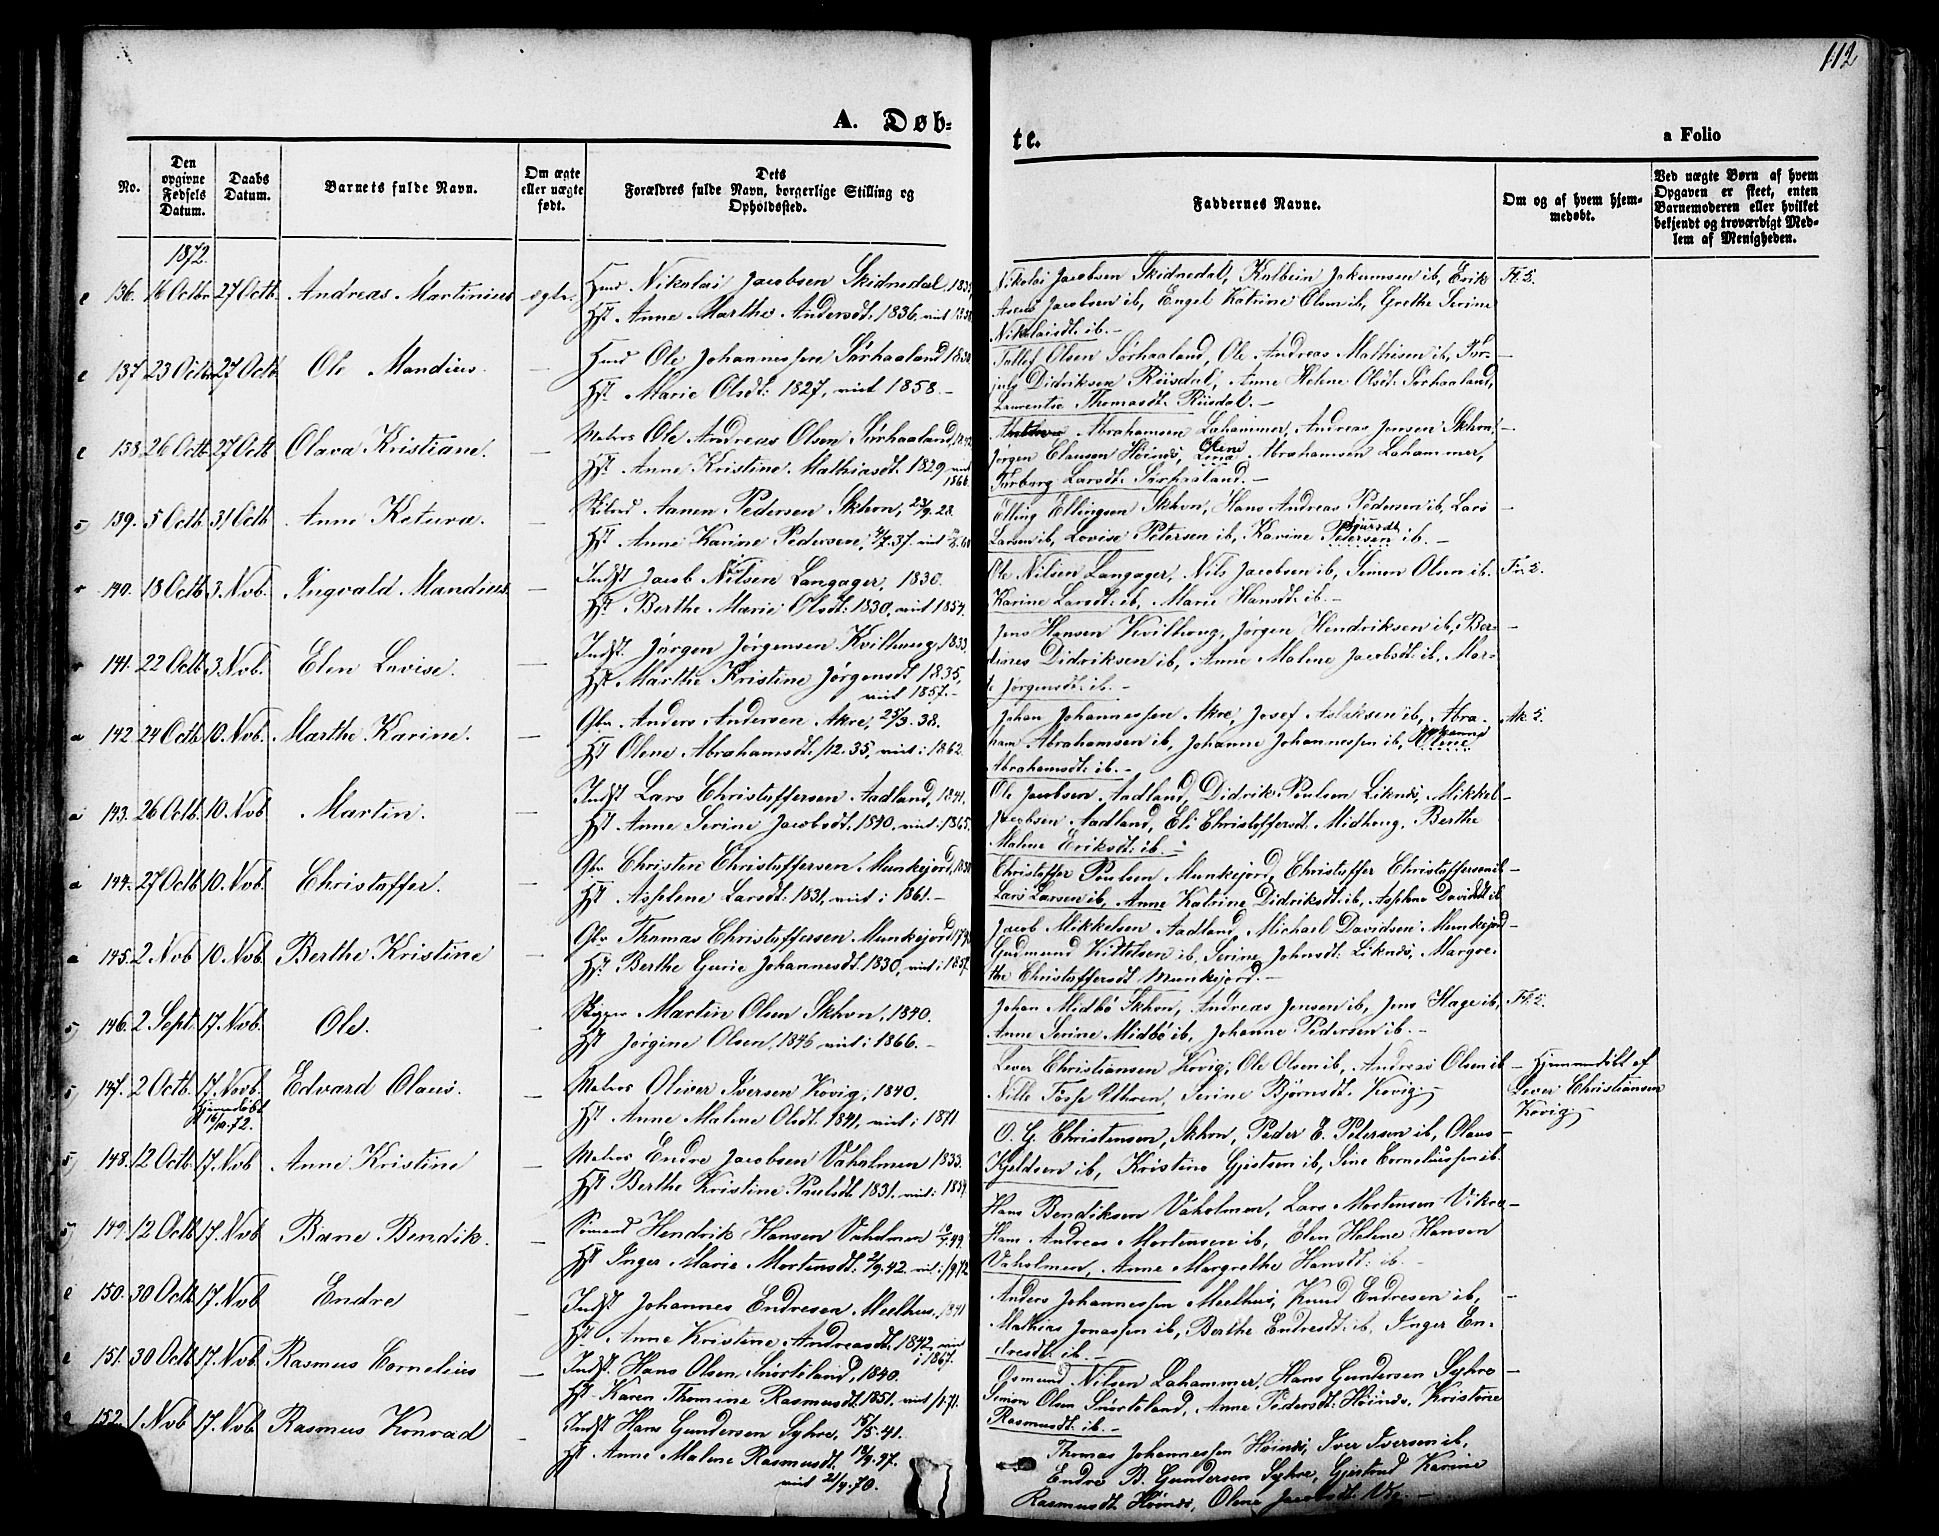 112
A. Døb-
te.
a Folio
No.
Den opgivne Fødsels Datum.
Daabs Datum.
Barnets fulde Navn.
Om ægte eller uægte født.
Dets Forældres fulde Navn, borgerlige Stilling og Opholdssted.
Faddernes Navne.
Om og af hvem hjemmedøbt.
Ved uægte Børn af hvem Opgaven er skeet, enten Barnemoderen eller hvilket bekjendt og troværdigt Medlem af Menigheden.
1872.
136. 16 Octbr 27 Octb Andreas Martinius ægte.
Nikolai Jacobsen Skidnedal,
Hst. Anne Marthe Andersdt. 1836,
Nikolai Jacobsen Skidnedal, Kolbein Jokumsen ib, Erik
Jacobsen ib, Engel Katrine Olsen ib, Grethe Serine
Nikolaisdt. ib. -
137 23 Octbr 27 Octb Ole Mandius. -
Ole Johannessen Sørhaaland 1830
Hst. Marie Olsdt: 1827, viet 1858. -
Tollef Olsen Sørhaaland, Ole Andreas Mathisen ib, Tor-
Didriksen Riisdal, Anne Helene Olsdt. Sørhaaland,
Laurentse Thomasdt. Riisdal. -
138 26 Octb 27 Octb Olava Kristiane. -
Matros Ole Andreas Olsen Sørhaaland,
Hst. Anne Kristine Mathiasdt. 1829 viet
1866.
Abrahamsen Lahammer, Andreas Jensen Skhvn,
Jørgen Clausen Høinæs, Olene Abrahamsen Lahammer,
Torborg Larsdt. Sørhaaland. -
139. 5 Octb 31 Octb Anne Ketura. -
Aanen Pedersen Skhvn, 28.
Hst. Anne Karine Pedersen, 37. viet
Elling Ellingsen Skhvn, Hans Andreas Pedersen ib, Lars
Larsen ib, Lovise Petersen ib, Karine Petersen ib. -
140. 18 Octb 3 Nvb. Ingvald Mandius. -
Indst Jacob Nilsen Langager, 1830.
Hst. Berthe Marie Olsdt: 1830, viet 1854.
Ole Nilsen Langager, Nils Jacobsen ib, Simon Olsen ib.
Karine Larsdt: ib, Marie Hansdt: ib. -
141. 22 Octb 3 Nvb. Elen Lovise. -
Indst. Jørgen Jørgensen Kvilhoug, 1833
Hst Marthe Kristine Jørgensdt 1835,
viet 1857. -
Jens Hansen Kvilhoug, Jørgen Hendriksen ib, Ber-
tines Didriksen ib, Anne Malene Jacobsdt: ib, Mar-
Jørgensdt: ib. -
142. 24 Octb 10. Nvb. Marthe Karine. -
Gbr. Anders Andersen Akre, 25/3. 38.
Hst Olene Abrahamsdt. /12. 35, viet i 1862.
Johan Johannessen Akre, Josef Aslaksen ib, Abra-
ham Abrahamsen ib, Johanne Johannessen ib, Olene
Abrahamsdt: ib. -
143. 26 Octb. 10. Nvb Martin. -
Indst Lars Christoffersen Aadland, 1841.
Hst. Anne Serine Jacobsdt. 1840, viet i 1865.
Ole Jacobsen Aadland, Didrik Poulsen Liknæs, Mikkel
Jacobsen Aadland, Eli Christoffersdt. Midhoug, Berthe
Malene Eriksdt: ib. -
144. 27 Octb. 10. Nvb. Christoffer. -
Gbr. Christen Christoffersen Munkejord,
Hst. Asplene Larsdt. 1831, viet i 1861. -
Christoffer Poulsen Munkejord, Christoffer Christoffersen ib
Lars Larsen ib, Anne Katrine Didriksdt: ib, Asplene Davidsdt ib
145. 2 Nvb 10 Nvb. Berthe Kristine -
Gbr Thomas Christoffersen Munkejord
Hst. Berthe Gurie Johannesdt. 1830, viet i 1857.
Jacob Mikkelsen Aadland, Michael Davidsen Munkejord
Gudmund Kittelsen ib, Serine Johnsdt. Liknæs, Margre-
the Christoffersdt Munkejord. -
146. 2 Sept. 17. Nvb. Ole. -
Skipper Martin Olsen Skhvn, 1840.
Hst Jørgine Olsen, 1846 viet i 1866. -
Johan Midbø Skhvn, Andreas Jensen ib, Jens Hage ib,
Anne Serine Midbø ib, Johanne Pedersen ib. -
147. 2 Octb. 17. Novb. Edvard Olaus. -
Hjemmedøbt
72.
Matros Oliver Iversen Kovig, 1840.
Hst. Anne Malene Olsdt: 1841, viet i 1871
Sever Christiansen Kovig, Ole Olsen ib, Andreas Olsen ib
Nille Foss Uthvn, Serine Bjørnsdt. Kovig. -
Hjemmedøbt af
Sever Christiansen
Kovig. -
148. 12 Octb. 17. Nvb Anne Kristine -
Matros Endre Jacobsen Vaholmen 1833.
Hst Berthe Kristine Poulsdt. 1831. viet i
O. G. Christensen, Skhvn, Peder E. Petersen ib, Olaus
Kjeldsen ib, Kristine Gjertsen ib, Sine Corneliussen ib.
149. 12 Octb. 17. Nvb. Bane Bendik. -
Sømand Hendrik Hansen Vaholmen 49.
Hst Inger Marie Mortensdt. 2/9. 42.
Hans Bendiksen Vaholmen, Lars Mortensen Vikre
Hans Andreas Mortensen ib, Elen Helene Hansen
Vaholmen, Anne Margrethe Hansdt: ib. -
150. 30 Octb. 17. Nvb Endre -
Indst Johannes Endresen Meelhus, 1841
Hst. Anne Kristine Andreasdt. 1842, viet
i 1867.
Anders Johannessen Meelhus, Knud Endresen ib,
Mathias Jonassen ib, Berthe Endresdt: ib, Inger En-
dresdt: ib. -
151. 30 Octb. 17. Nvb. Rasmus Cornelius -
Indst. Hans Olsen Snørteland, 1840.
Hst Karen Thomine Rasmusdt. 1851. viet
Osmund Nilsen Lahammer, Hans Gundersen Syhre
Simon Olsen Snørteland, Anne Pedersdt. Høinæs, Kristine
Rasmusdt: ib. -
152. 1. Nvb 17. Nvb. Rasmus Konrad -
Indst Hans Gundersen Syhre, 15/5. 41.
Hst. Anne Malene Rasmusdt. 47.
viet 21/4. 70.
Thomas Johannessen Høinæs, Iver Iversen ib,
Endre B. Gundersen Syhre, Gjertrud Karine
Rasmusdt. Høinæs, Olene Jacobsdt. -